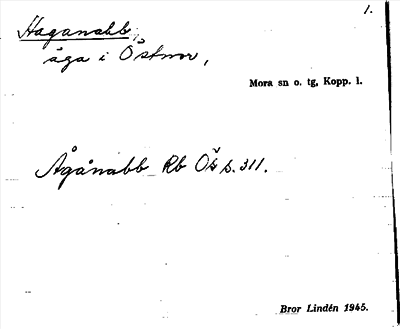 1.
Haganabb,
åga i Östnor,
Mora sn o. tg, Kopp. l.
Ågånabb Rb Ös s. 311.
Bror Lindén 1945.